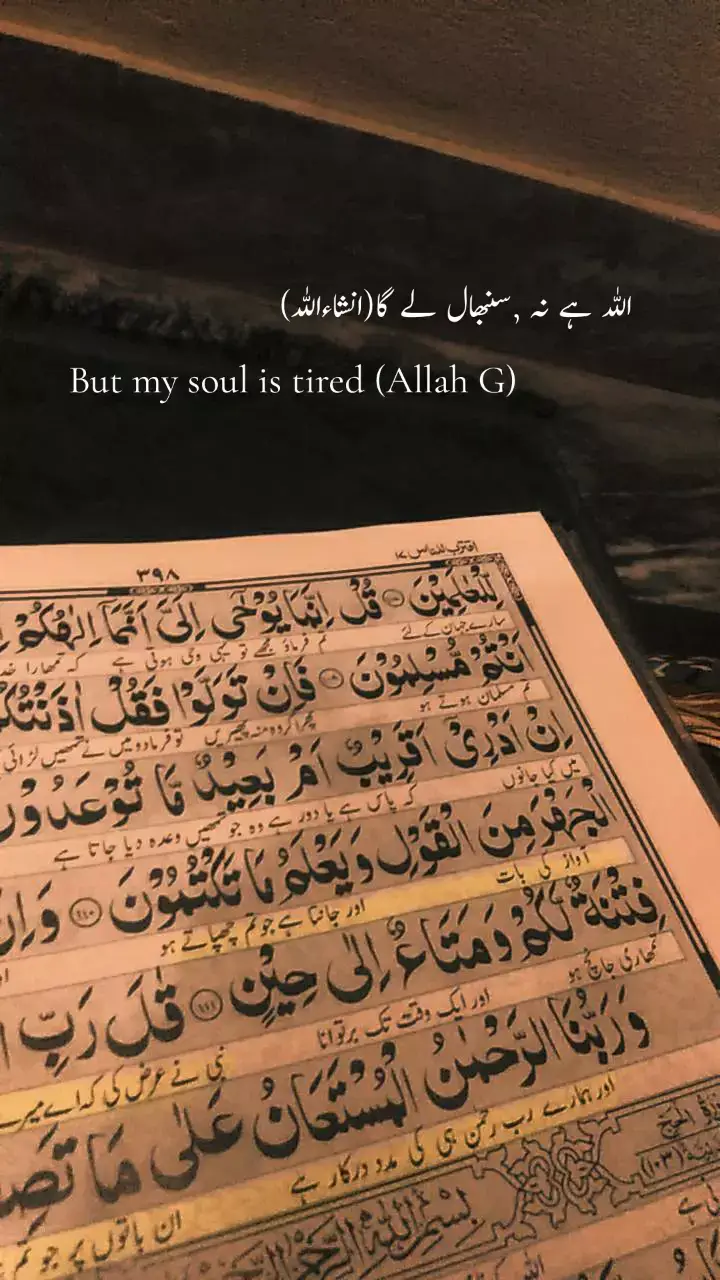 اللہ ہے نہ ,سنبھال لے گا(انشاءاللہ)
But my soul is tired (Allah G)
اقترب للناس ۱۷
۳۹۸
لِّلْعٰلَمِیْنَ ۝ قُلْ اِنَّمَا یُوْحٰۤی اِلَیَّ اَنَّمَاۤ اِلٰهُكُمْ
سارے جہان کے لئے تم فرماؤ مجھے تو یہی وحی ہوتی ہے کہ تمھارا
اَنْتُمْ مُّسْلِمُوْنَ ۝ فَاِنْ تَوَلَّوْا فَقُلْ اٰذَنْتُكُمْ
تم مسلمان ہوتے ہو پھر اگر وہ منہ پھیریں تو فرما دو میں نے تمھیں لڑائی
اِنْ اَدْرِیْۤ اَقَرِیْبٌ اَمْ بَعِیْدٌ مَّا تُوْعَدُوْنَ
میں کیا جانوں کہ پاس ہے یا دور ہے وہ جو تمھیں وعدہ دیا جاتا ہے
الْجَهْرَ مِنَ الْقَوْلِ وَیَعْلَمُ مَا تَكْتُمُوْنَ ۝۱۱۰ وَاِنْ
آواز کی بات اور جانتا ہے جو تم چھپاتے ہو
فِتْنَةٌ لَّكُمْ وَمَتَاعٌ اِلٰی حِیْنٍ ۝۱۱۱ قٰلَ رَبِّ
تمھاری جانچ ہو اور ایک وقت تک برتوانا نبی نے عرض کی کہ اے میرے
وَرَبُّنَا الرَّحْمٰنُ الْمُسْتَعَانُ عَلٰی مَا
اور ہمارے رب رحمٰن ہی کی مدد درکار ہے ان باتوں پر جو تم
بِسْمِ اللّٰهِ الرَّحْمٰنِ